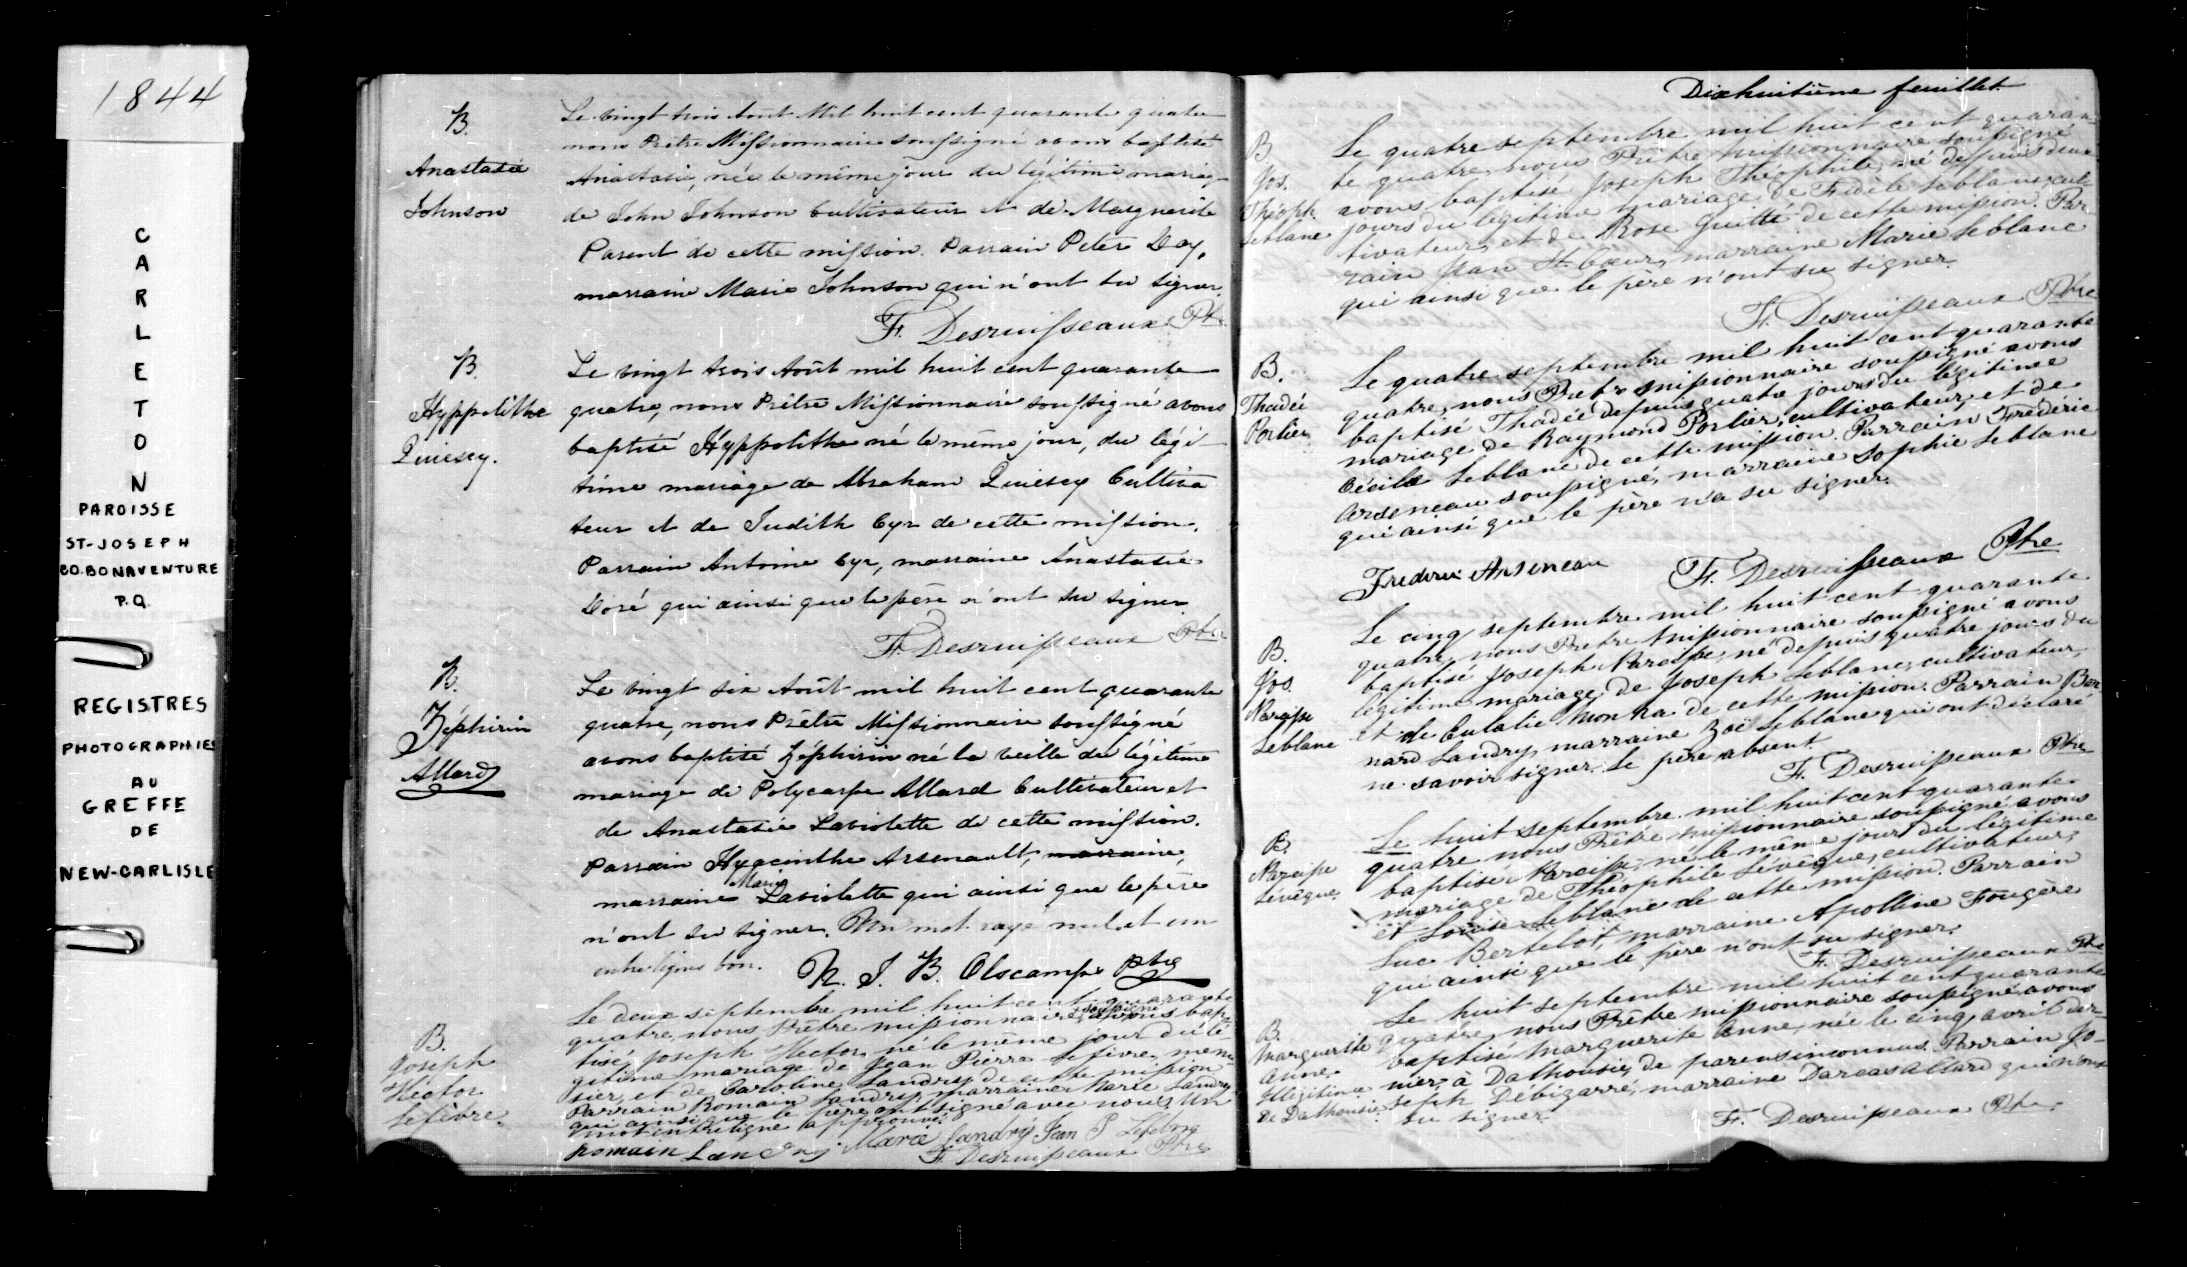 1844
CARLETON
PAROISSE
ST-JOSEPH
CO. BONAVENTURE
P.Q.
REGISTRES
PHOTOGRAPHIES
AU
GREFFE
DE
NEW-CARLISLE
B.
Anastasie
Johnson
Le vingt trois Août Mil huit cent quarante quatre
nous Prêtre Missionnaire soussigné avons baptisé
Anastasie, née le même jour du légitime mariage
de John Johnson Cultivateur et de Marguerite
Parent de cette mission. Parrain Peter Day,
marraine Marie Johnson qui n'ont su signer.
F. Desruisseaux Ptre
B.
Hyppolithe
Quiesey.
Le vingt trois Août mil huit cent quarante
quatre, nous Prêtre Missionnaire soussigné avons
baptisé Hyppolithe né le même jour, du légi
time mariage de Abraham Quiesey Cultiva
teur et de Judith Cyr de cette mission.
Parrain Antoine Cyr, marraine Anastasie
Doré qui ainsi que le père n'ont su signer.
F. Desruisseaux Ptre
B.
Zéphirin
Allard
Le vingt six Août mil huit cent quarante
quatre, nous Prêtre Missionnaire soussigné
avons baptisé Zéphirin né la veille du légitime
mariage de Polycarpe Allard Cultivateur et
de Anastasie Laviolette de cette mission.
Parrain Hyacinthe Arsenault, marraine,
Marie
marraine Laviolette qui ainsi que le père
n'ont su signer. Un mot rayé nul et un
entreligne bon.
N. J. B. Olscamps Ptre
B.
Joseph
Hector
Lefèvre.
Le deux septembre mil huit cent quarante
soussigné
quatre, nous Prêtre missionnaire, avons bap-
tisé Joseph Hector, né le même jour du lé-
gitime mariage de Jean Pierre Lefèvre menui
sier, et de Caroline Landry de cette mission
Parrain Romain Landry, marraine Marie Landry
qui ainsi que le père ont signé avec nous. Un
mot entreligne approuvé.
Romain Landry Marie Landry Jean P Lefebvre
F. Desruisseaux Ptre
Dixhuitième feuillet.
B
Jos.
Théoph.
Leblanc
Le quatre septembre mil huit cent quaran-
te quatre, nous Prêtre missionnaire soussigné
avons baptisé Joseph Théophile, né depuis deux
jours du légitime mariage de Fidèle Leblanc, cul-
tivateur, et de Rose Guitté de cette mission. Par
rain Jean St. Cœur, marraine Marie Leblanc
qui ainsi que le père n'ont su signer.
F. Desruisseaux Ptre
B.
Thadée
Porlier
Le quatre septembre mil huit cent quarante
quatre, nous Prêtre missionnaire soussigné avons
baptisé Thadée depuis quatre jours du légitime
mariage de Raymond Porlier, cultivateur, et de
Cécile Leblanc de cette mission. Parrain Frédéric
Arseneau soussigné, marraine Sophie Leblanc
qui ainsi que le père n'a su signer.
Frederic Arseneau F. Desruisseaux Ptre
B.
Jos.
Narcisse
Leblanc
Le cinq septembre mil huit cent quarante
quatre, nous Prêtre missionnaire soussigné avons
baptisé Joseph Narcisse, né depuis quatre jours du
légitime mariage de Joseph Leblanc, cultivateur,
et de Eulalie de cette mission. Parrain Ber-
nard Landry, marraine Zoé Leblanc qui ont déclaré
ne savoir signer. Le père absent.
F. Desruisseaux Ptre
B.
Narcisse
Lévêque.
Le huit septembre mil huit cent quarante
quatre nous Prêtre missionnaire soussigné avons
baptisé Narcisse, né le même jour du légitime
mariage de Théophile Lévêque, cultivateur,
et Louise Leblanc de cette mission. Parrain
Luc Bertelot, marraine Apolline Fougère
qui ainsi que le père n'ont su signer.
F. Desruisseaux Ptre
B.
Marguerite
Anne
Illégitime
de Dalhousie.
Le huit septembre mil huit cent quarante
quatre, nous Prêtre missionnaire soussigné avons
baptisé Marguerite Anne, née le cinq avril der-
nier, à Dalhousie, de parens inconnus. Parrain Jo-
seph Débizarré, marraine Darcas Allard qui n'ont
su signer.
F. Desruisseaux Ptre.